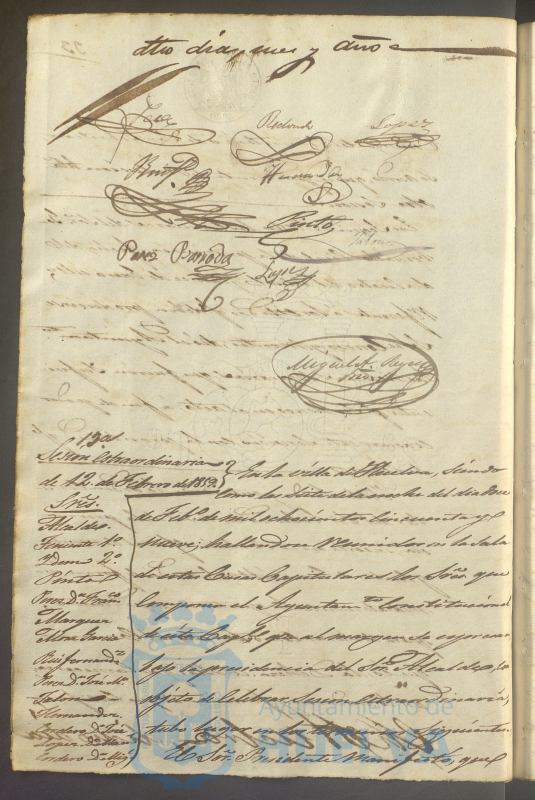 dho dia, mes y año =
Redondo
Lopez
Hernandez
Pinto
Perez Barroda
Lopez
Miguel A. Reyes
Srio
13ª
Sesion extraordinaria
de 12. de Febrero de 1859.
Sres.
Alcalde.
Teniente 1º.
Ydem 2º.
Pinto
Perez Dn. Franco.
Marquez
Mora Garcia
Ruifernandez
Perez Dn. José Ma.
Hernandez
Cordero Dn. José
Lopez Dn. Juan
Cordero Dn. Mig.
En la villa de Huelva, siendo
como las siete de la noche del dia doce
de Febo. de mil ochocientos cincuenta y
nueve; hallandose reunidos en la Sala
de estas Casas Capitulares los Sres. que
componen el Ayuntamto. Constitucional
de esta Capl. que al margen se espresan
bajo la presidencia del Sor. Alcalde, con
objeto de celebrar sesion extraordinaria,
tubo lugar
siguiente.
El Sor. Presidente manifestó, que
Ayuntamiento de
HUELVA